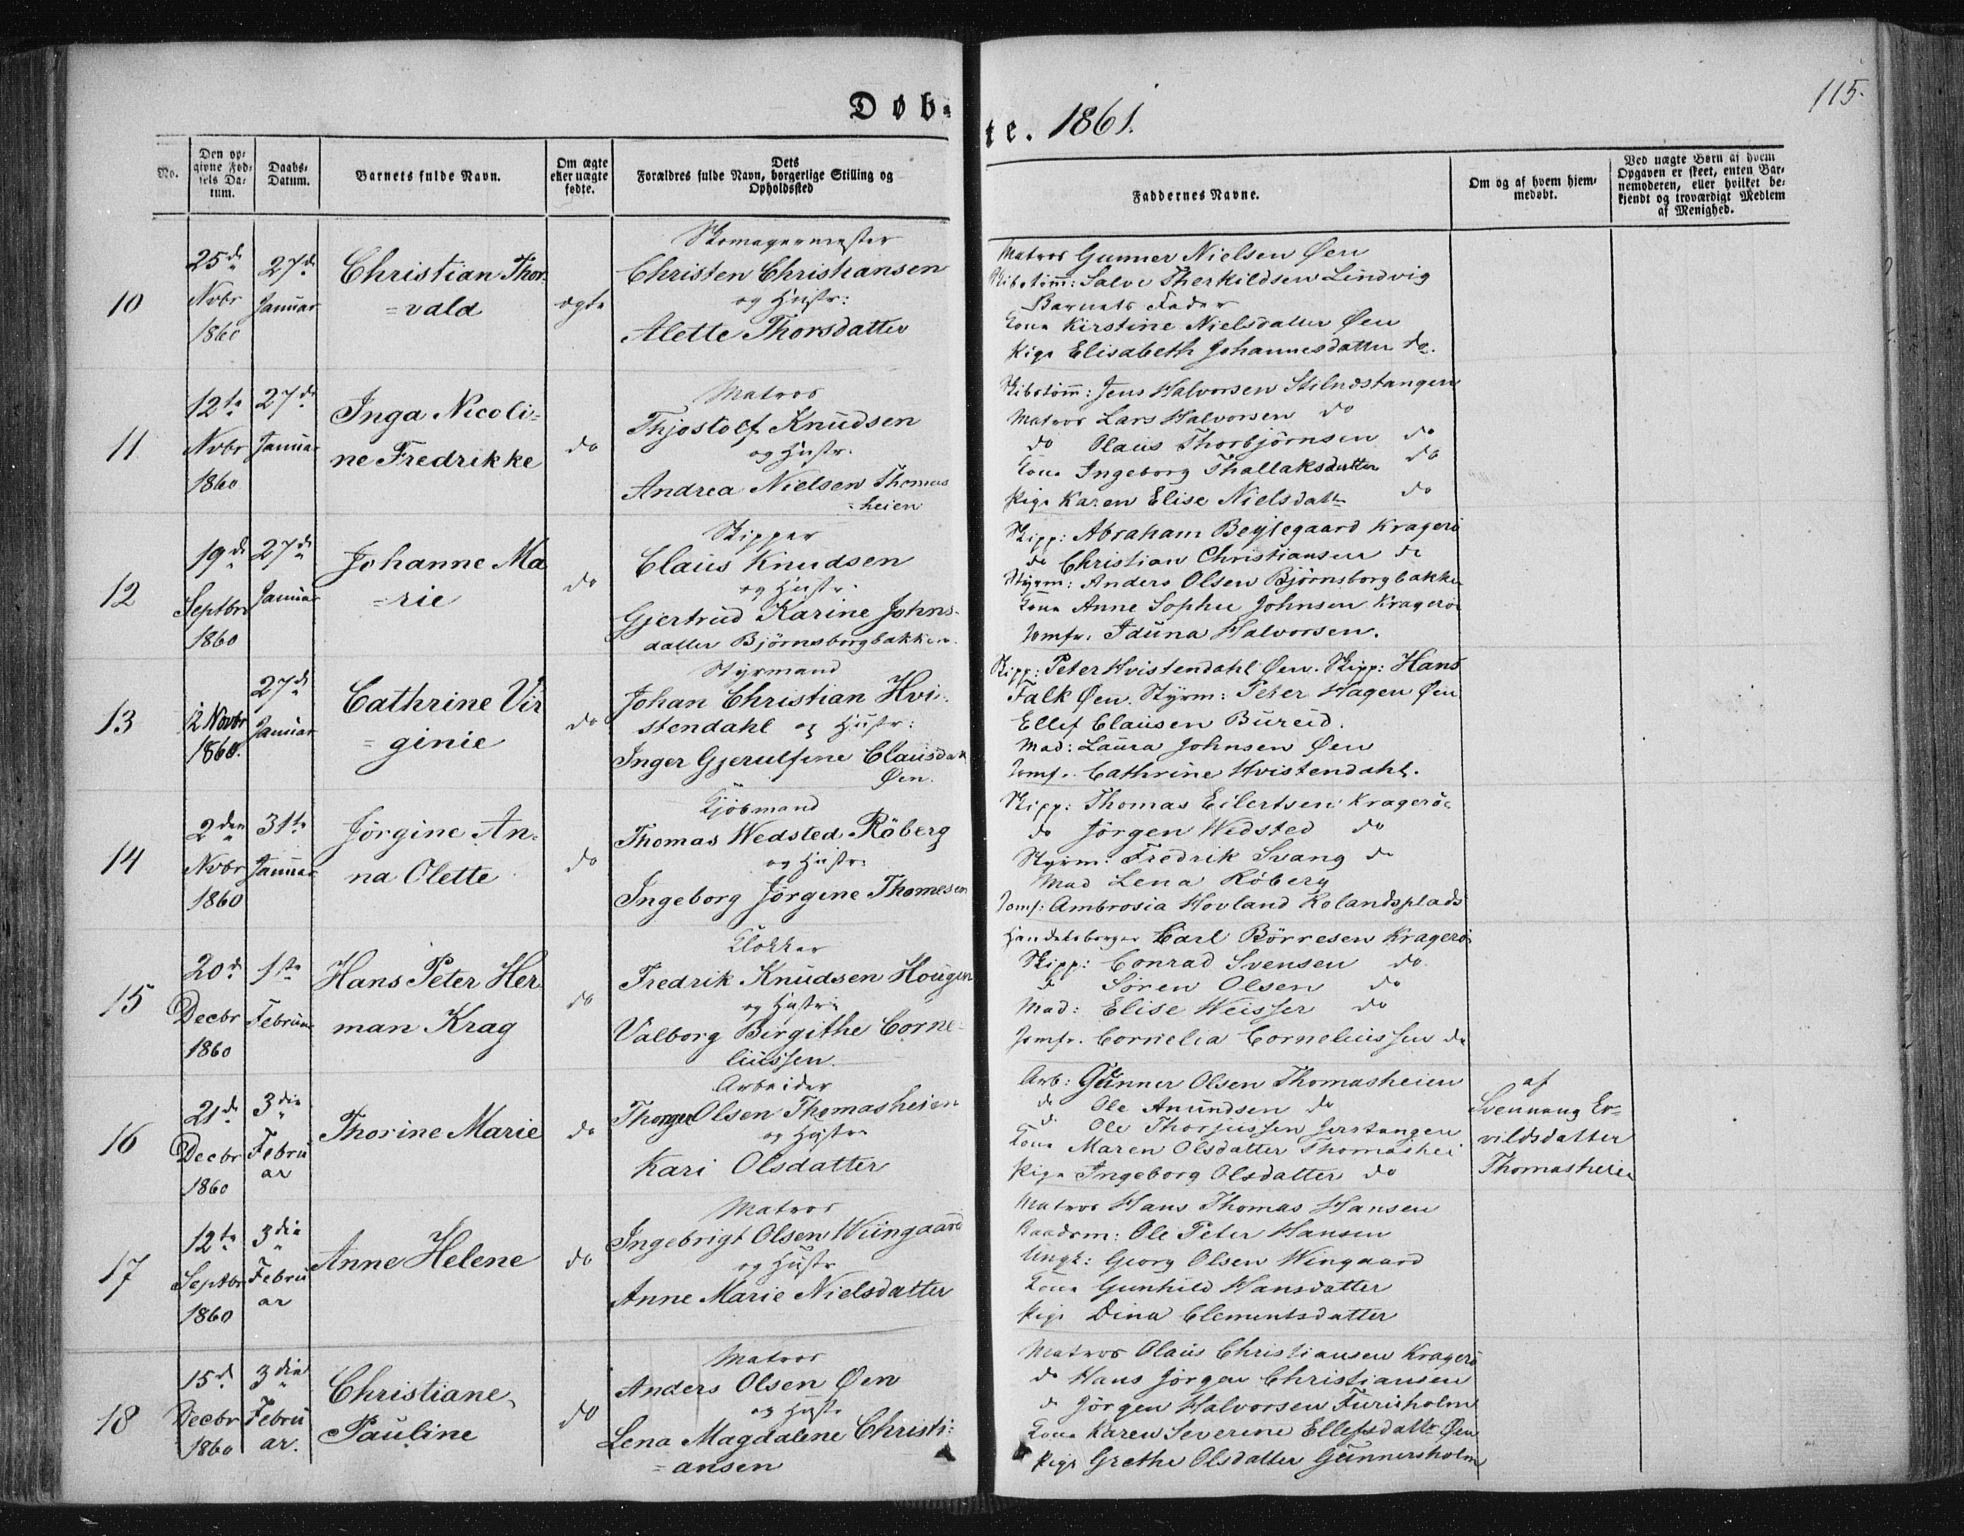 Døb-
te. 1861.
115.
No.
Den op-
givne Fød-
sels Da-
tum.
Daabs-
Datum.
Barnets fulde Navn.
Om ægte
eller uægte
fødte.
Dets
Forældres fulde Navn, borgerlige Stilling og
Opholdssted
Faddernes Navne.
Om og af hvem hjem-
medøbt.
Ved uægte Børn af hvem
Opgaven er skeet, enten Bar-
nemoderen, eller hvilket be-
kjendt og troværdigt Medlem
af Menighed.
10
25de
Novbr
1860
27de
Januar
Christian Thor-
=vald
ægte
Skomagermester
Christen Christiansen
og Hustr:
Alette Thorsdatter
Matros Gunner Nielsen Øen
Skibstømm: Salve Therkildsen Lindvig
Barnets Fader
Kona Kirstine Nielsdatter Øen
Pige Elisabeth Johannesdatter do.
11
12te
Novbr
1860
27de
Januar
Inga Nicoli-
ne Fredrikke
do
Matros
Thjostolf Knudsen
og Hustr.
Andrea Nielsen Thomas
=heien
Skibstømm: Jens Halvorsen Stilnæstangen
Matros Lars Halvorsen do
do Olaus Thorbjørnsen do
Kona Ingeborg Thallaksdatter do
Pige Karen Elise Nielsdatt do
12
19de
Septbr
1860
27de
Januar
Johanne Ma
=rie
do
Skipper
Claus Knudsen
og Hustr.
Gjertrud Karine Johns-
datter Bjørnsborgbakken.
Skipp: Abraham Beylegaard Kragerø
do Christian Christiansen do
Styrm: Anders Olsen Bjørnsborgbakke
Kona Anne Sophie Johnsen Kragerø
Jomfr. Iduna Halvorsen.
13
12 Novbr
1860.
27de
Januar
Cathrine Vir
=ginie
do
Styrmand
Johan Christian Hvi-
stendahl og Hustr:
Inger Gjerulfine Clausdatt
Øen.
Skipp: Peter Hvistendahl Øen. Skipp: Hans
Falk Øen. Styrm: Peter Hagen Øen
Ellef Clausen Bureid.
Mad: Laura Johnsen Øen
Jomf. Cathrine Hvistendahl.
14
2den
Novbr
1860
31te
Januar
Jørgine An-
na Olette
do
Kjøbmand
Thomas Wedsted Röberg
og Hustr:
Ingeborg Jørgine Thomesen
Skipp: Thomas Eilertsen Kragerø
do Jørgen Wedsted do
Styrm: Fredrik Svang do
Mad Lena Röberg
Jomf: Ambrosia Hovland Kolandsplads
15
20de
Decbr
1860
1ste
Februar
Hans Peter Her
man Krag
do
Klokker
Fredrik Knudsen Hougen
og Hustr:
Valborg Birgithe Corne-
liussen.
Handelsborger Carl Börresen Kragerø
Skipp: Conrad Svensen do
Søren Olsen do
Mad: Elise Weisser do
Jomfr. Cornelia Corneliussen do
16
21de
Decbr
1860
3die
Febru
ar
Thorine Marie
do
Arbeider
Olsen Thomasheien
og Hustr
Kari Olsdatter
Arb: Gunner Olsen Thomasheien
do Ole Amundsen do
do Ole Thorjussen
Kona Maren Olsdatter Thomashei
Pige Ingeborg Olsdatter do
af
Svennaug Er-
vildsdatter
Thomasheien
17
12te
Septbr
1860
3die
Febru
ar
Anne Helene
do
Matros
Ingebrigt Olsen Wiingaard
og Hustr
Anne Marie Nielsdatter
Matros Hans Thomas Hansen
Baadsm: Ole Peter Hansen
Ungk: Georg Olsen Wingaard
Kona Gunhild Hansdatter
Pige Dina Clementsdatter
18
15de
Decbr
1860
3die
Febru
ar.
Christiane
Pauline
do
Matros
Anders Olsen Øen
og Hustr
Lena Magdalene Christi-
=ansen
Matros Olaus Christiansen Kragerø
do Hans Jørgen Christiansen
do Jørgen Halvorsen Furuholm
Kona Karen Severine Ellefsdattr Øen
Pige Grethe Olsdatter Gunnersholm